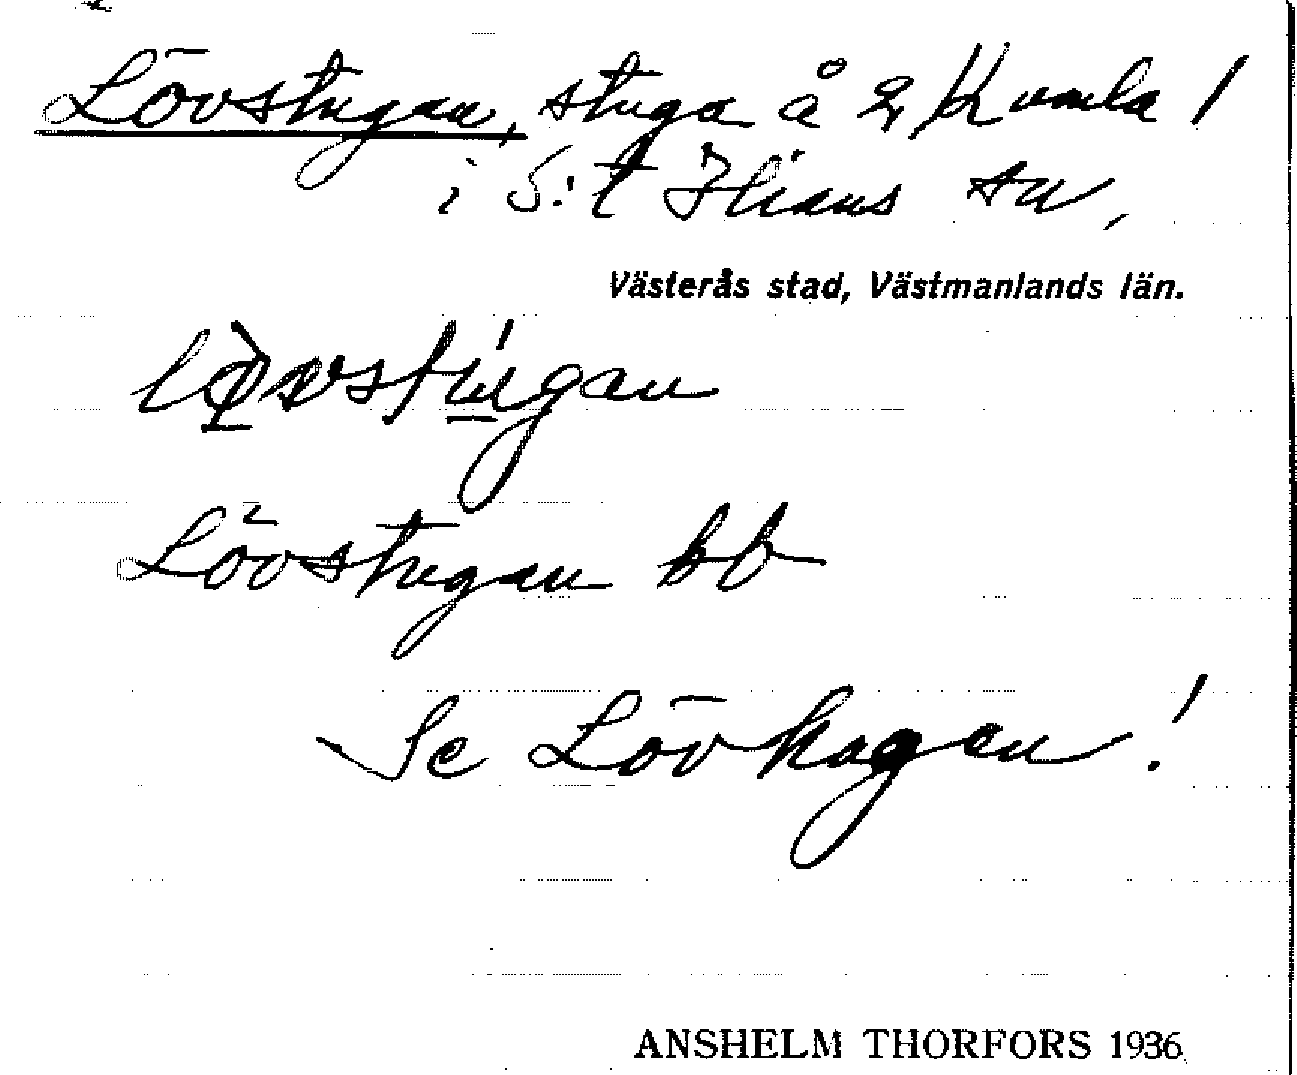 Lövstugan, stuga å 2/Kumla /
i S:t Ilians sn,
Västerås stad, Västmanlands län.
Lövstugan bb
Se Lövhagen!
ANSHELM THORFORS 1936